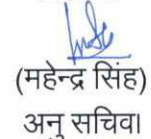 (महेन्द्र सिंह)
अनु सचिव।